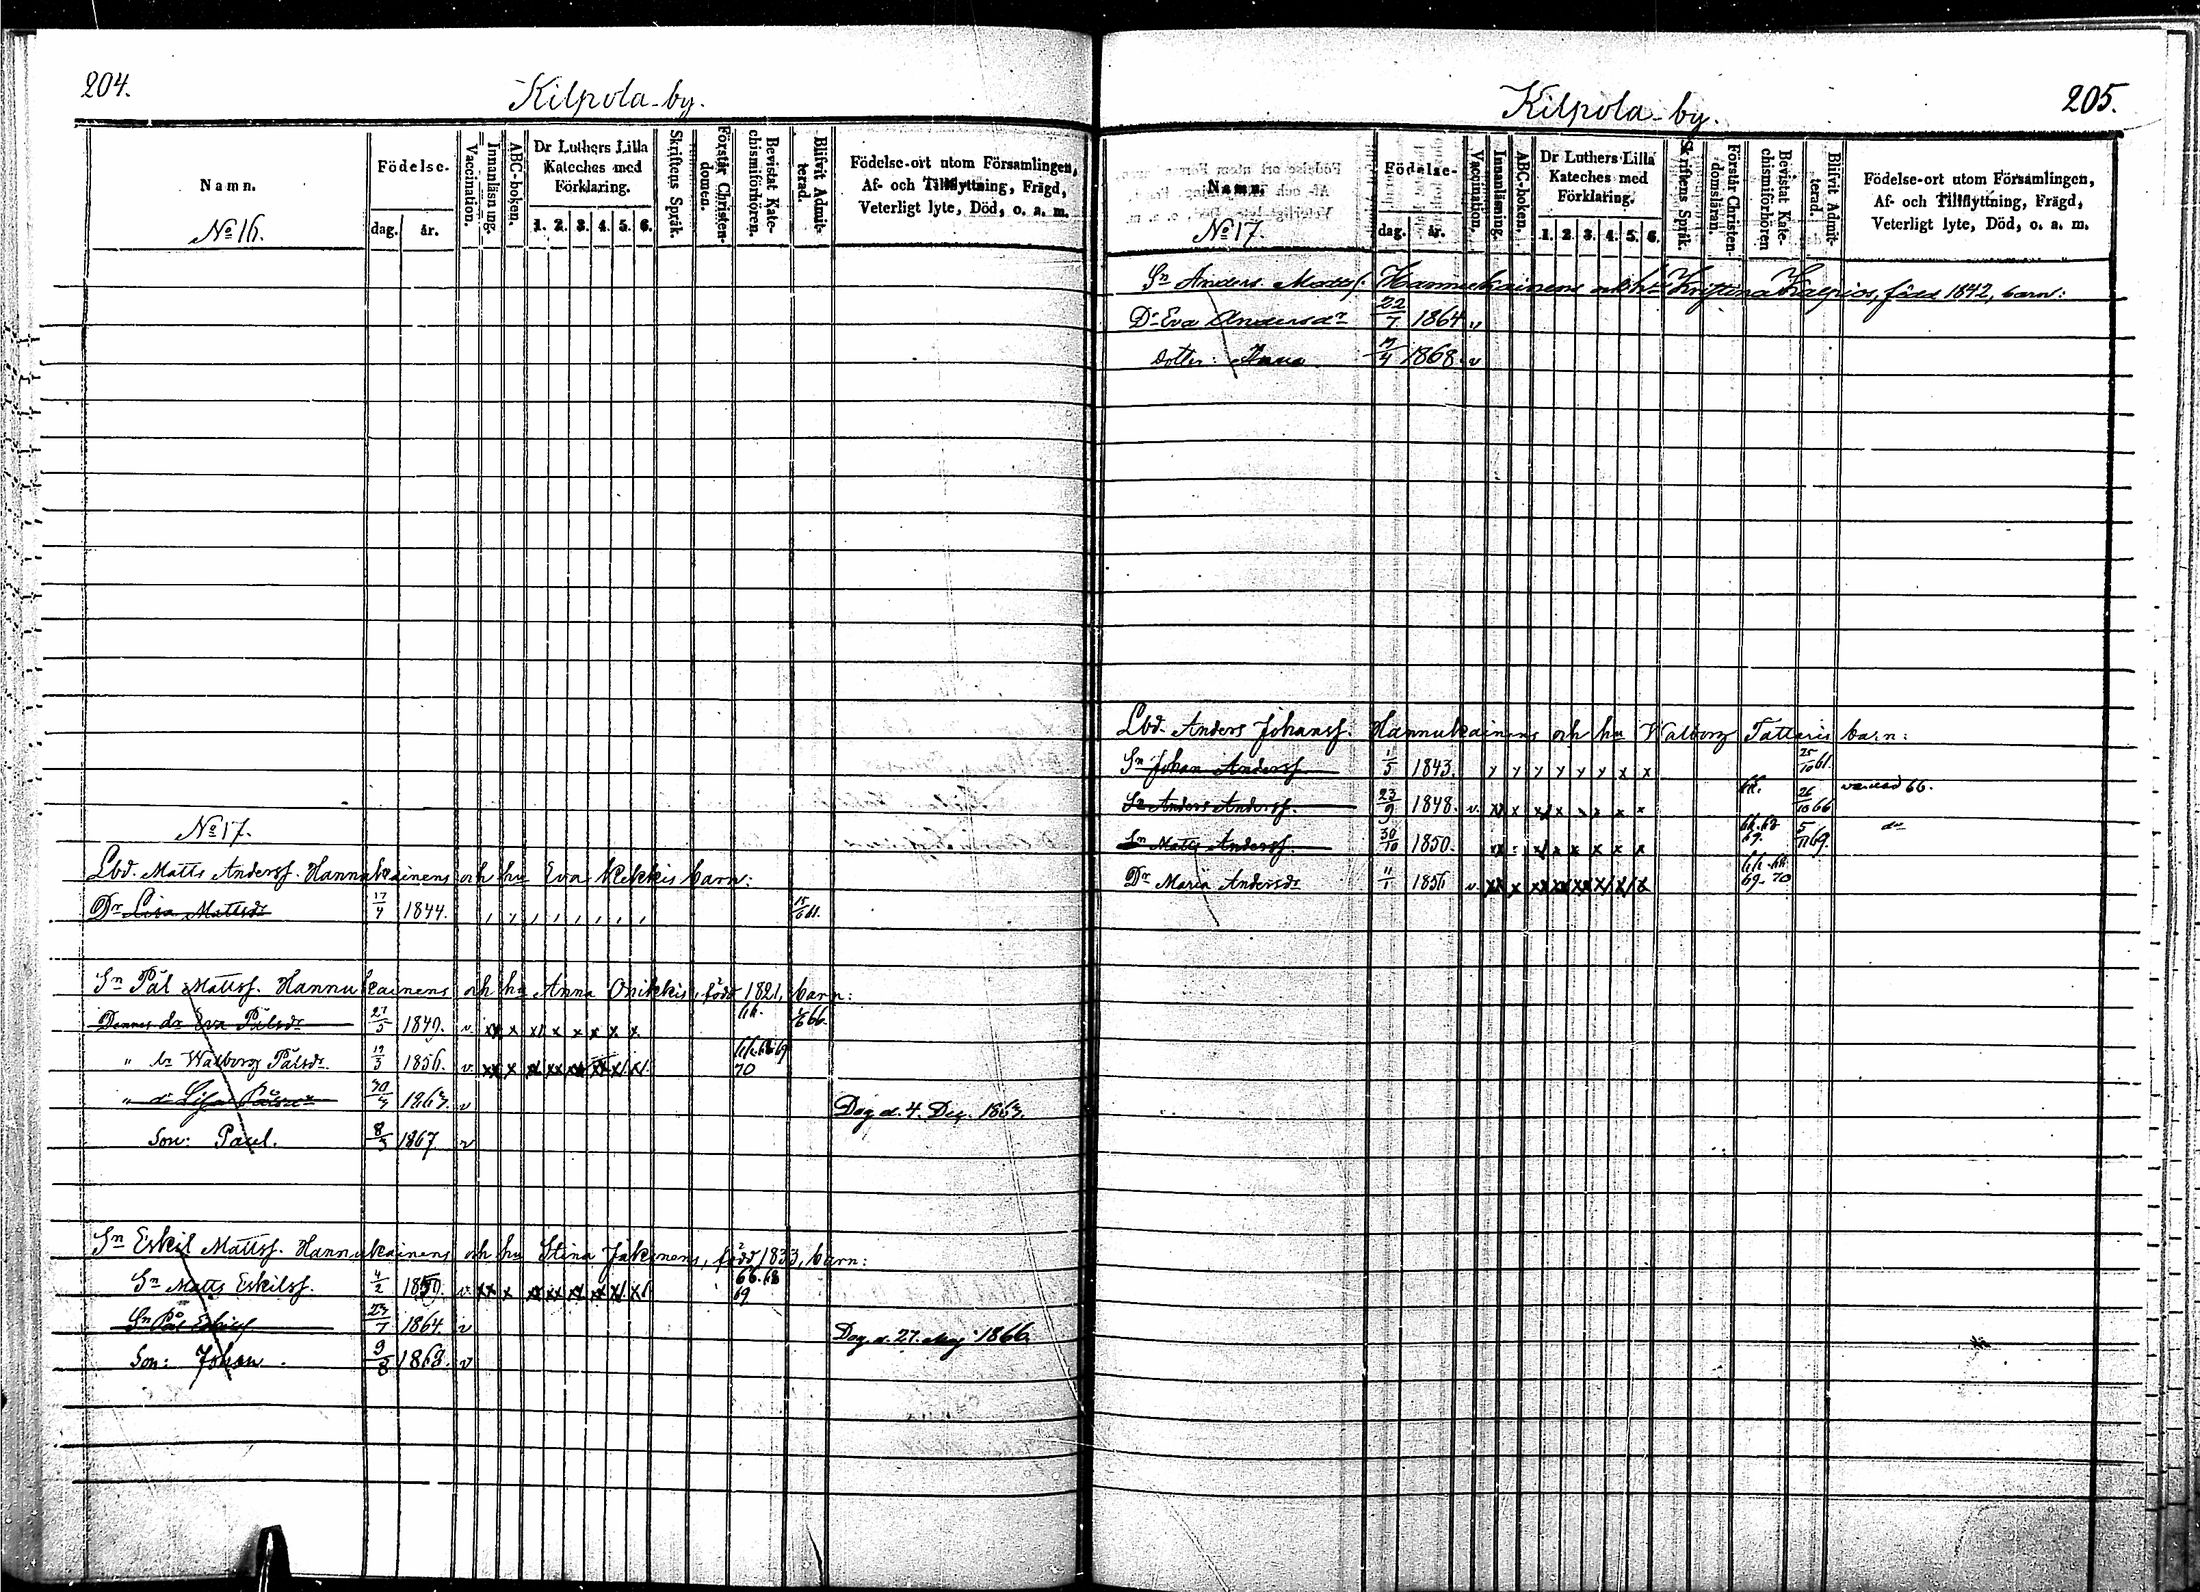 204.
Kilpola by.
Namn.
No 16.
Födelse-
dag. år.
Vaccination.
Innanläsning.
ABC-boken.
Dr Luthers Lilla
Kateches med
Förklaring.
1. 2. 3. 4. 5. 6.
Skriftens Språk.
Förstår Christen-
domen.
Bevistat Kate-
chismiförhören.
Blifvit Admit-
terad.
Födelse-ort utom Församlingen,
Af- och Tillflyttning, Frägd,
Veterligt lyte, Död, o. a. m.
No 17.
Lbd. Matts Anderss. Hannukainens och hu Eva Kekkis barn:
Dr Lisa Mattsdr 17/4 1844. 61.
Sn Pål Mattss. Hannukainens och hu Anna Onikkis, född 1821, barn:
Dennes dr Eva Pålsdr 27/5 1849. v. x x x x x x x x 66.
" dr Walborg Pålsdr 19/3 1856. v. xx x 68 69
70
" dr Lisa Pålsdr 1863. v Dog d. 4. Dec. 1863.
Son: Paul. 8/3 1867. v
Sn Eskil Mattss. Hannukainens och hu Stina Jakonens, född 1833, barn:
Sn Matts Eskilss. 4/2 1859. v. xx x 66. 68
69
Sn Pål Eskilss. 23/7 1864. v Dog d. 27. Maj 1866.
Son: Johan. 9/8 1868. v
205.
Kilpola by.
Namn.
No 17.
Födelse-
dag. år.
Vaccination.
Innanläsning.
ABC-boken.
Dr Luthers Lilla
Kateches med
Förklaring.
1. 2. 3. 4. 5. 6.
Skriftens Språk.
Förstår Christen-
domsläran.
Bevistat Kate-
chismiförhören
Blifvit Admit-
terad.
Födelse-ort utom Församlingen,
Af- och Tillflyttning, Frägd,
Veterligt lyte, Död, o. a. m.
Sn Anders Matss. Hannukainens och hu Kristina Kalpios, född 1842, barn:
Dr Eva Andersdr 22/7 1864 v
dotter: Anna 1868. v
Lbd. Anders Johanss. Hannukainens och hu Walborg Tattaris barn:
Sn Johan Anderss. 1/5 1843. 25/10 61.
Sn Anders Anderss. 23/9 1848. v. 26/10 66
Sn Matts Anderss. 30/10 1850. 69. 5/11 69. do
Dr Maria Andersdr 11/1 1856 v. 69. 70